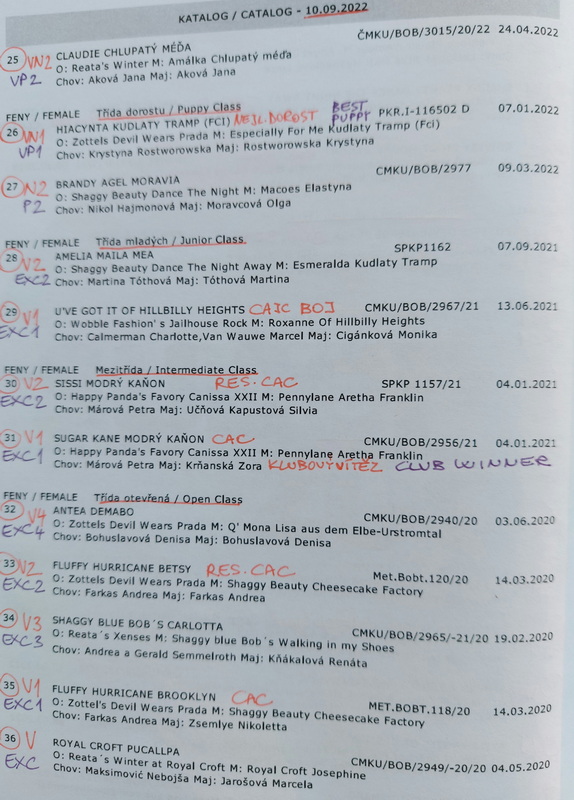 KATALOG / CATALOG - 10.09.2022
25 VN2 CLAUDIE CHLUPATÝ MÉĎA ČMKU/BOB/3015/20/22 24.04.2022
VP2 O: Reata's Winter M: Amálka Chlupatý méďa
Chov: Aková Jana Maj: Aková Jana
FENY / FEMALE Třída dorostu / Puppy Class BEST PUPPY PKR.I-116502 D 07.01.2022
26 VN1 HIACYNTA KUDLATY TRAMP (FCI) NEJL. DOROST
VP1 O: Zottels Devil Wears Prada M: Especially For Me Kudlaty Tramp (Fci)
Chov: Krystyna Rostworowska Maj: Rostworowska Krystyna
27 N2 BRANDY AGEL MORAVIA CMKU/BOB/2977 09.03.2022
P2 O: Shaggy Beauty Dance The Night M: Macoes Elastyna
Chov: Nikol Hajmonová Maj: Moravcová Olga
FENY / FEMALE Třída mladých / Junior Class SPKP1162 07.09.2021
28 V2 AMELIA MAILA MEA
EXC2 O: Shaggy Beauty Dance The Night Away M: Esmeralda Kudlaty Tramp
Chov: Martina Tóthová Maj: Tóthová Martina
29 V1 U'VE GOT IT OF HILLBILLY HEIGHTS CAJC BOJ CMKU/BOB/2967/21 13.06.2021
EXC1 O: Wobble Fashion' s Jailhouse Rock M: Roxanne Of Hillbilly Heights
Chov: Calmerman Charlotte,Van Wauwe Marcel Maj: Cigánková Monika
FENY / FEMALE Mezitřída / Intermediate Class
30 V2 SISSI MODRÝ KAŇON RES. CAC SPKP 1157/21 04.01.2021
EXC2 O: Happy Panda's Favory Canissa XXII M: Pennylane Aretha Franklin
Chov: Márová Petra Maj: Učňová Kapustová Silvia
31 V1 SUGAR KANE MODRÝ KAŇON CAC CMKU/BOB/2956/21 04.01.2021
EXC1 O: Happy Panda's Favory Canissa XXII M: Pennylane Aretha Franklin
Chov: Márová Petra Maj: Krňanská Zora KLUBOVÝ VÍTĚZ CLUB WINNER
FENY / FEMALE Třída otevřená / Open Class
32 V4 ANTEA DEMABO CMKU/BOB/2940/20 03.06.2020
EXC4 O: Zottels Devil Wears Prada M: Q' Mona Lisa aus dem Elbe-Urstromtal
Chov: Bohuslavová Denisa Maj: Bohuslavová Denisa
33 V2 FLUFFY HURRICANE BETSY RES. CAC Met.Bobt.120/20 14.03.2020
EXC2 O: Zottels Devil Wears Prada M: Shaggy Beauty Cheesecake Factory
Chov: Farkas Andrea Maj: Farkas Andrea
34 V3 SHAGGY BLUE BOB´S CARLOTTA CMKU/BOB/2965/-21/20 19.02.2020
EXC3 O: Reata´s Xenses M: Shaggy blue Bob´s Walking in my Shoes
Chov: Andrea a Gerald Semmelroth Maj: Kňákalová Renáta
35 V1 FLUFFY HURRICANE BROOKLYN CAC MET.BOBT.118/20 14.03.2020
EXC1 O: Zottel's Devil Wears Prada M: Shaggy Beauty Cheesecake Factory
Chov: Farkas Andrea Maj: Zsemlye Nikoletta
36 V ROYAL CROFT PUCALLPA CMKU/BOB/2949/-20/20 04.05.2020
EXC O: Reata´s Winter at Royal Croft M: Royal Croft Josephine
Chov: Maksimović Nebojša Maj: Jarošová Marcela